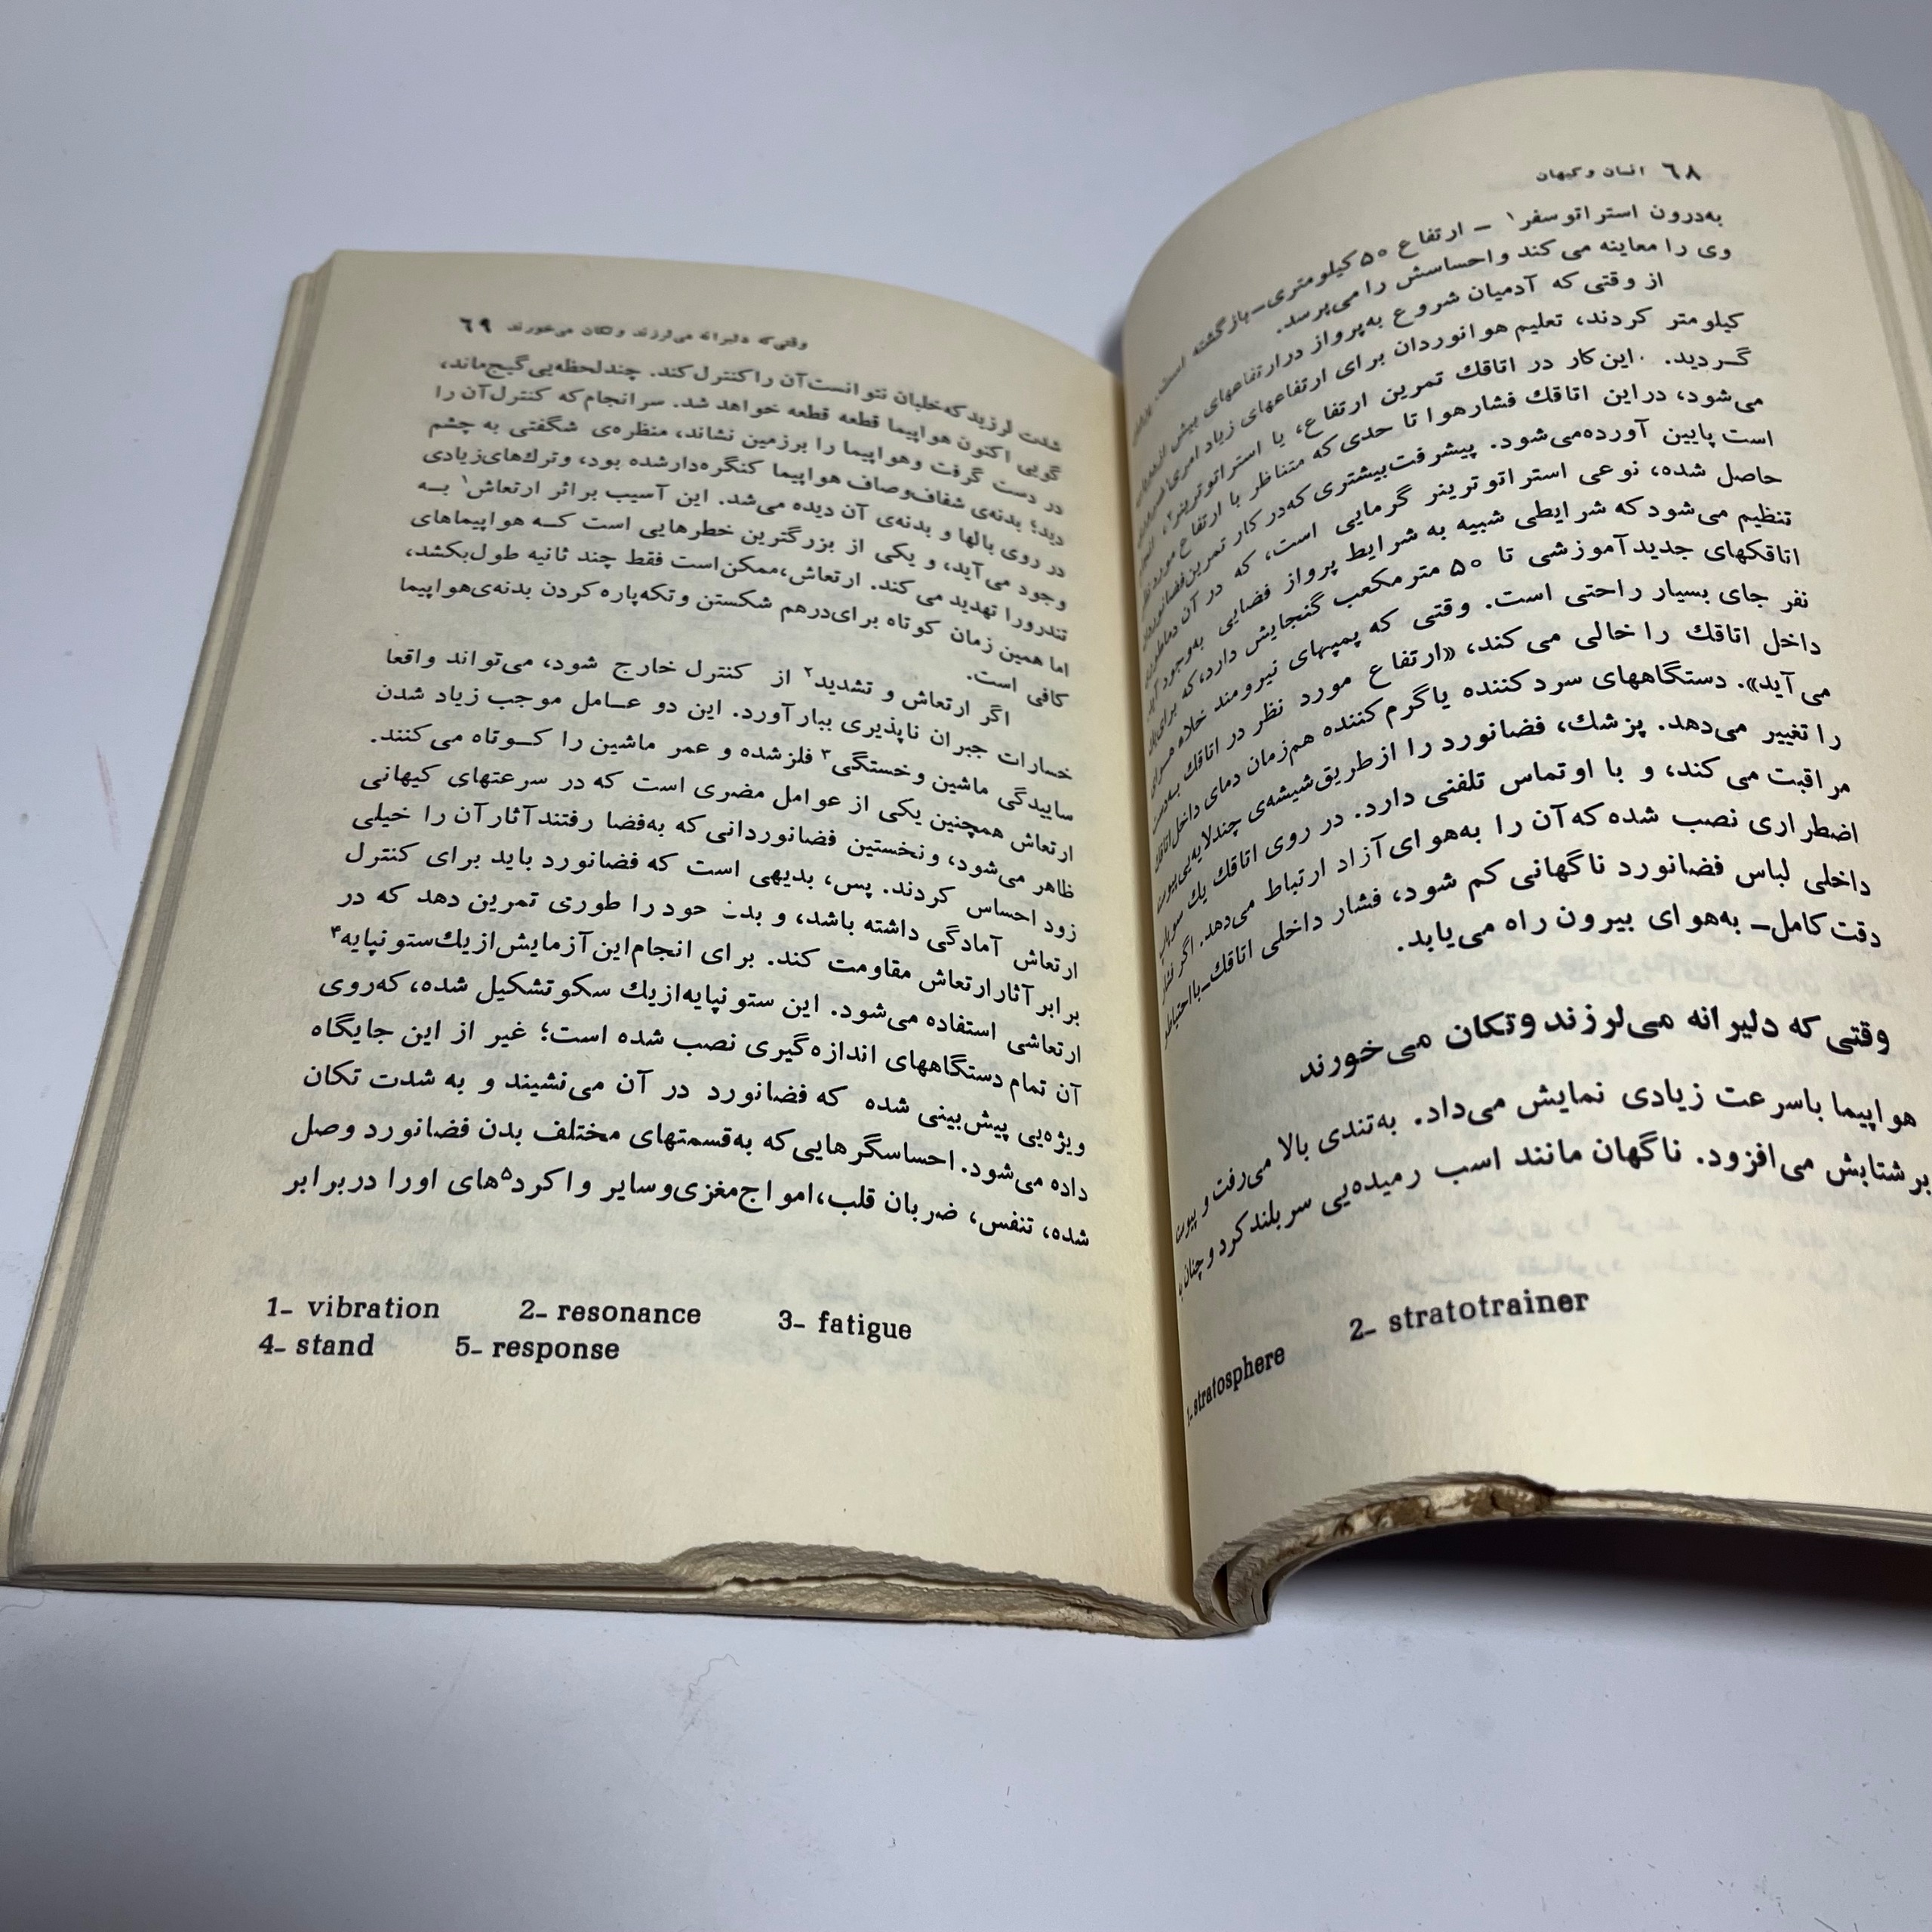 ۶۸ انسان و کیهان
به‌درون استراتوسفر۱ ـ ارتفاع ۵۰ کیلومتری ـ بازگشته است.
وی را معاینه می‌کند و احساسش را می‌پرسد.
از وقتی که آدمیان شروع به‌پرواز در ارتفاعهای بیش از
کیلومتر کردند، تعلیم هوانوردان برای ارتفاعهای زیاد امری
گردید. این‌کار در اتاقك تمرین ارتفاع، یا استراتوترینر۲،
می‌شود، در این اتاقك فشار هوا تا حدی که متناظر با ارتفاع مورد نظر
است پایین آورده‌می‌شود. پیشرفت بیشتری که‌در کار تمرین فضانوردان
حاصل شده، نوعی استراتوترینر گرمایی است، که در آن دما طوری
تنظیم می‌شود که شرایطی شبیه به شرایط پرواز فضایی به‌وجود آید.
اتاقکهای جدید آموزشی تا ۵۰ متر مکعب گنجایش دارد، که برای
نفر جای بسیار راحتی است. وقتی که پمپهای نیرومند خلاء هوای
داخل اتاقك را خالی می‌کند، «ارتفاع مورد نظر در اتاقك به‌دست
می‌آید». دستگاههای سرد کننده یا گرم کننده هم‌زمان دمای داخل اتاقك
را تغییر می‌دهد. پزشك، فضانورد را از طریق شیشه‌ی چندلایه‌یی
مراقبت می‌کند، و با او تماس تلفنی دارد. در روی اتاقك یك سوپاپ
اضطراری نصب شده که آن را به‌هوای آزاد ارتباط می‌دهد. اگر فشار
داخلی لباس فضانورد ناگهانی کم شود، فشار داخلی اتاقك ـ با احتیاط و
دقت کامل ـ به‌هوای بیرون راه می‌یابد.
وقتی که دلیرانه می‌لرزند و تکان می‌خورند
هواپیما باسرعت زیادی نمایش می‌داد. به‌تندی بالا می‌رفت و
بر شتابش می‌افزود. ناگهان مانند اسب رمیده‌یی سر بلند کرد و چنان با
1- stratosphere 2- stratotrainer
وقتی‌که دلیرانه می‌لرزند و تکان می‌خورند ۶۹
شدت لرزید که خلبان نتوانست آن را کنترل کند. چند لحظه‌یی گیج ماند،
گویی اکنون هواپیما قطعه قطعه خواهد شد. سرانجام که کنترل آن را
در دست گرفت و هواپیما را بر زمین نشاند، منظره‌ی شگفتی به چشم
دید؛ بدنه‌ی شفاف و صاف هواپیما کنگره‌دار شده بود، و ترك‌های زیادی
در روی بالها و بدنه‌ی آن دیده می‌شد. این آسیب بر اثر ارتعاش۱ بــه
وجود می‌آید، و یکی از بزرگترین خطرهایی است کــه هواپیماهای
تندرو را تهدید می‌کند. ارتعاش، ممکن است فقط چند ثانیه طول‌بکشد،
اما همین زمان کوتاه برای درهم شکستن و تکه‌پاره کردن بدنه‌ی هواپیما
کافی است.
اگر ارتعاش و تشدید۲ از کنترل خارج شود، می‌تواند واقعا
خسارات جبران ناپذیری ببار آورد. این دو عــامل موجب زیاد شدن
ساییدگی ماشین و خستگی۳ فلز شده و عمر ماشین را کــوتاه می‌کنند.
ارتعاش همچنین یکی از عوامل مضری است که در سرعتهای کیهانی
ظاهر می‌شود، و نخستین فضانوردانی که به‌فضا رفتند آثار آن را خیلی
زود احساس کردند. پس، بدیهی است که فضانورد باید برای کنترل
ارتعاش آمادگی داشته باشد، و بدن خود را طوری تمرین دهد که در
برابر آثار ارتعاش مقاومت کند. برای انجام این آزمایش از یك ستونپایه۴
ارتعاشی استفاده می‌شود. این ستونپایه از یك سکو تشکیل شده، که‌روی
آن تمام دستگاههای اندازه‌گیری نصب شده است؛ غیر از این جایگاه
ویژه‌یی پیش‌بینی شده که فضانورد در آن می‌نشیند و به شدت تکان
داده می‌شود. احساسگرهایی که به‌قسمتهای مختلف بدن فضانورد وصل
شده، تنفس، ضربان قلب، امواج مغزی و سایر واکرد۵های او را در برابر
1- vibration 2- resonance 3- fatigue
4- stand 5- response